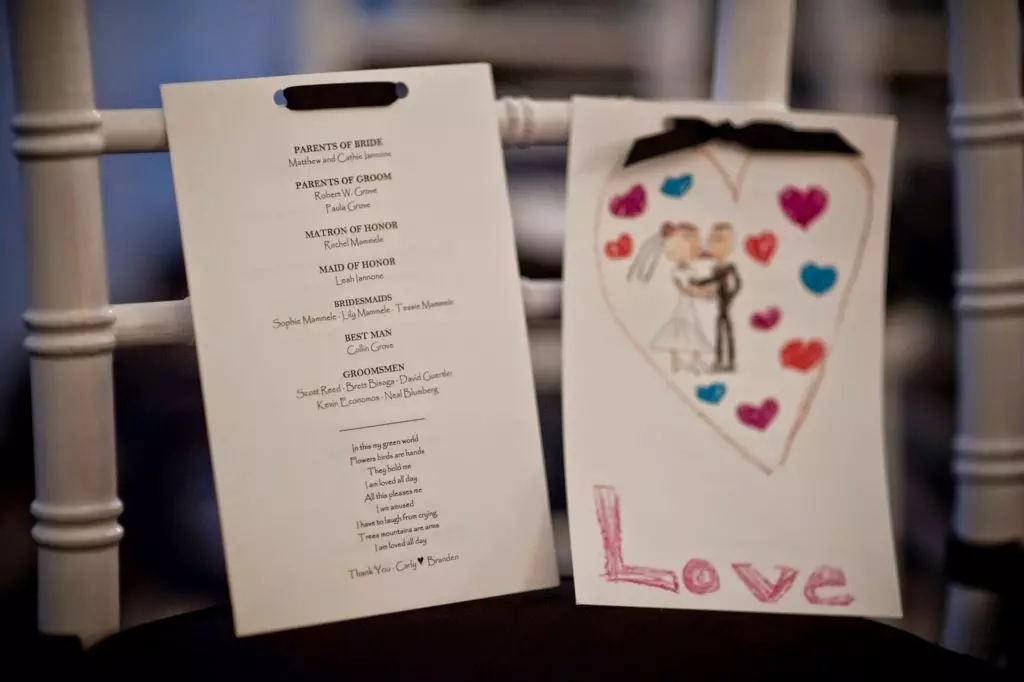 PARENTS OF BRIDE
Matthew and Cathie Iannone
PARENTS OF GROOM
Robert W. Grove
Paula Grove
MATRON OF HONOR
Rachel Mammele
MAID OF HONOR
Leah Iannone
BRIDESMAIDS
Sophie Mammele · Lily Mammele · Tessie Mammele
BEST MAN
Collin Grove
GROOMSMEN
Scott Reed · Brett Bisoga · David Guertler
Kevin Economos · Neal Blumberg
In this my green world
Flowers birds are hands
They hold me
I am loved all day
All this pleases me
I am amused
I have to laugh from crying
Trees mountains are arms
I am loved all day
Thank You · Carly ♥ Branden
Love